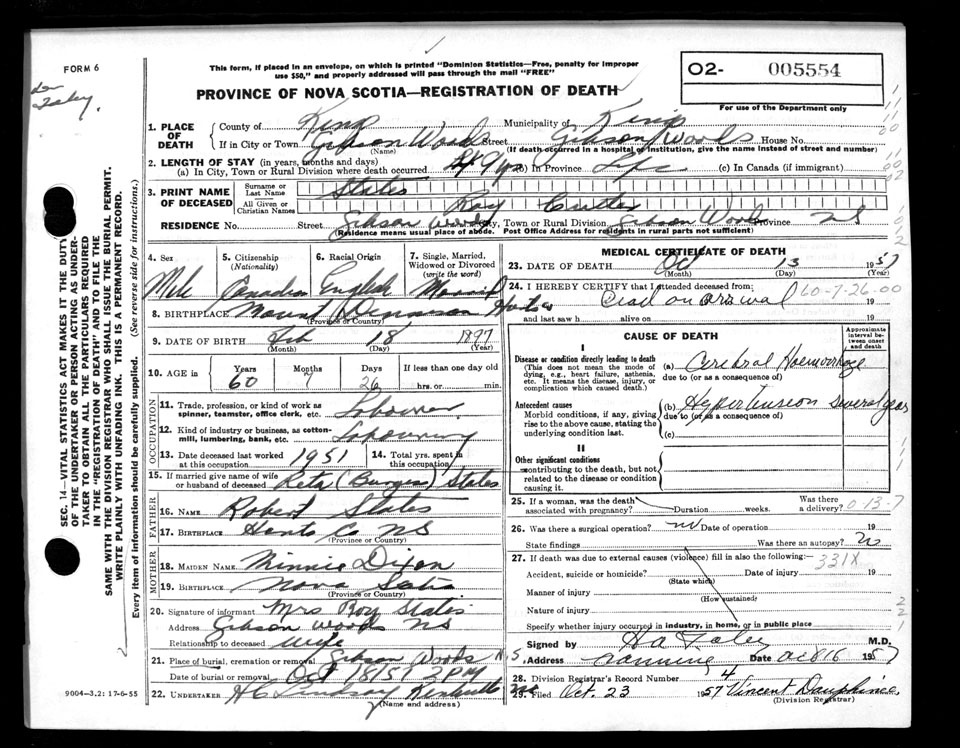 FORM 6
This form, if placed in an envelope, on which is printed "Dominion Statistics—Free, penalty for improper
use $50," and properly addressed will pass through the mail "FREE"
PROVINCE OF NOVA SCOTIA—REGISTRATION OF DEATH
O2- 005554
For use of the Department only
1. PLACE OF DEATH
County of Kings Municipality of Kings
If in City or Town Gibson Woods Street Gibson Woods House No.
(Name) (If death occurred in a hospital or institution, give the name instead of street and number)
2. LENGTH OF STAY (in years, months and days)
(a) In City, Town or Rural Division where death occurred 49 yrs (b) In Province Life (c) In Canada (if immigrant)
3. PRINT NAME OF DECEASED
Surname or Last Name States
All Given or Christian Names Roy Cutler
RESIDENCE No. Street Gibson Woods City, Town or Rural Division Gibson Woods Province NS
(Residence means usual place of abode. Post Office Address for residents in rural parts not sufficient)
4. Sex 5. Citizenship (Nationality) 6. Racial Origin 7. Single, Married, Widowed or Divorced (write the word)
Male Canadian English Married
8. BIRTHPLACE Mount Denson Hants Co
(Province or Country)
9. DATE OF BIRTH Feb 18 1897
(Month) (Day) (Year)
10. AGE Years Months Days If less than one day old
60 7 26 hrs. or min.
OCCUPATION
11. Trade, profession, or kind of work as spinner, teamster, office clerk, etc. Labourer
12. Kind of industry or business, as cotton-mill, lumbering, bank, etc. Labouring
13. Date deceased last worked at this occupation 1951 14. Total yrs. spent in this occupation
15. If married give name of wife or husband of deceased Reta (Burgess) States
FATHER
16. NAME Robert States
17. BIRTHPLACE Hants Co NS
(Province or Country)
MOTHER
18. MAIDEN NAME Minnie Dixon
19. BIRTHPLACE Nova Scotia
(Province or Country)
20. Signature of informant Mrs Roy States
Address Gibson Woods NS
Relationship to deceased wife
21. Place of burial, cremation or removal Gibson Woods N.S
Date of burial or removal Oct 18/57 2 PM
22. UNDERTAKER H C Lindsay Kentville
(Name and address)
MEDICAL CERTIFICATE OF DEATH
23. DATE OF DEATH Oct 13 1957
(Month) (Day) (Year)
24. I HEREBY CERTIFY that I attended deceased from 60-7-26-00
Dead on arrival 19
and last saw h alive on 19
CAUSE OF DEATH
Approximate interval between onset and death
I
Disease or condition directly leading to death
(This does not mean the mode of dying, e.g., heart failure, asthenia, etc. It means the disease, injury, or complication which caused death.)
(a) Cerebral Haemorrhage
due to (or as a consequence of)
Antecedent causes
Morbid conditions, if any, giving rise to the above cause, stating the underlying condition last.
(b) Hypertension Several years
due to (or as a consequence of)
(c)
II
Other significant conditions
contributing to the death, but not related to the disease or condition causing it.
25. If a woman, was the death associated with pregnancy? Duration weeks. Was there a delivery? 0-13-7
26. Was there a surgical operation? no Date of operation 19
State findings Was there an autopsy? no
27. If death was due to external causes (violence) fill in also the following:— 331X
Accident, suicide or homicide? Date of injury 19
(State which)
Manner of injury
(How sustained)
Nature of injury
Specify whether injury occurred in industry, in home, or in public place
Signed by H A Foley M.D.
Address Canning Date Oct 16 1957
28. Division Registrar's Record Number 4
29. Filed Oct. 23 1957 Vincent Dauphinee
(Division Registrar)
SEC. 14—VITAL STATISTICS ACT MAKES IT THE DUTY
OF THE UNDERTAKER OR PERSON ACTING AS UNDER-
TAKER TO OBTAIN ALL THE PARTICULARS REQUIRED
IN THE "REGISTRATION OF DEATH" AND TO FILE THE
SAME WITH THE DIVISION REGISTRAR WHO SHALL ISSUE THE BURIAL PERMIT.
WRITE PLAINLY WITH UNFADING INK. THIS IS A PERMANENT RECORD.
Every item of information should be carefully supplied. (See reverse side for instructions.)
9004—3.2: 17-6-55